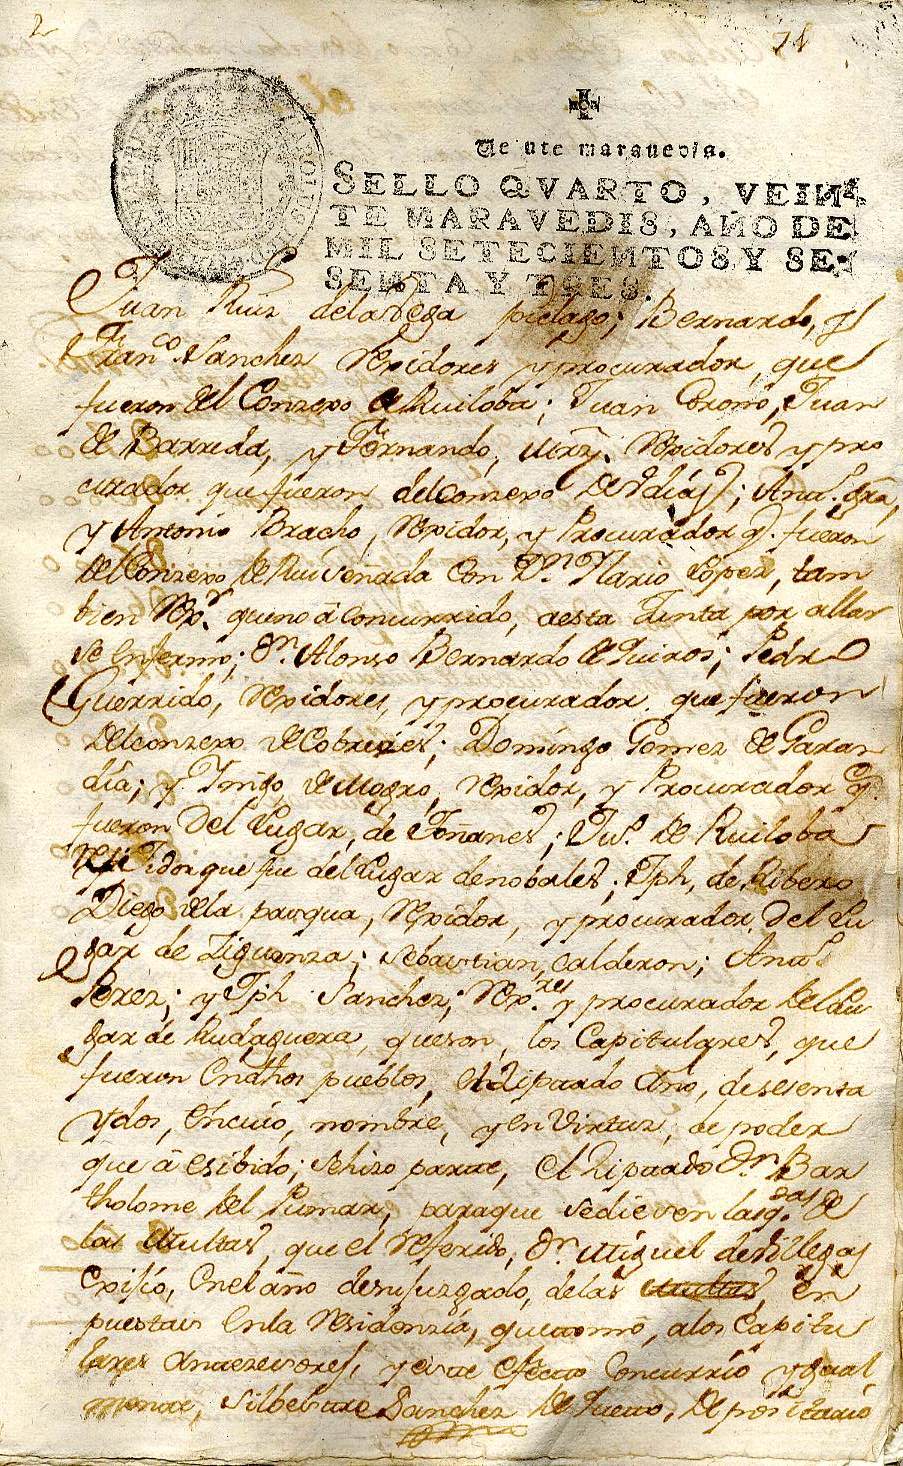 2
71
Veinte maravedis.
SELLO QVARTO, VEIN-
TE MARAVEDIS, AÑO DE
MIL SETECIENTOS Y SE-
SENTA Y TRES.
Juan Ruiz dela Vega Pielago; Bernardo, y
Franco. Sanchez Rexidores y procurador, que
fueron del Conzexo de Ruiloba; Juan Juan
de Barreda, y Fernando, Rexidores y pro
curador que fueron del conzexo de
y Antonio Bracho, Rexidor, y Procurador q. fueron
del Conzexo de Ruiseñada con Dn. Ylario Lopez, tam
bien Rexr. queno â concurrido, aesta Junta por allar
se enfermo; Dn. Alonso Bernardo de Quiros; Pedro
Guerrido, Rexidores, y procurador. que fueron
del conzexo de Cobreçes; Domingo Gomez de Garan
dia; y Iñigo, de Mogro, Rexidor, y Procurador q.
fueron Del Lugar, de Toñanes; Ju. de Ruiloba
Rexidor que fue del Lugar de nobales; Jph, de Ribero
Diego dela pasqua, Rexidor, y procurador, del Lu
gar de Ziguenza; Sebastian, Calderon;
Perez; y Jph Sanchez; Rexres y procurador del Lu
gar de Rudaguera, queson, los Capitulares, que
fueron En dhos pueblos, el Zitpardo Año, de sesenta
y dos, En cuio, nombre, y en Virtud, de poder
que â esibido; sehizo parte, el Dn. Bar
tholome del Pumar, paraque sediesen las qdas de
las Multas, que el Referido, Dn. Miguel de Villegas
Exisio, En el año desu juzgado, delas Multas en
puestas En la Residenzia, quetomo, a los Capitu
lares Antezesores, y este efecto Concurrio ygual
mente, Silbestre Sanchez de Cueto, Depositario